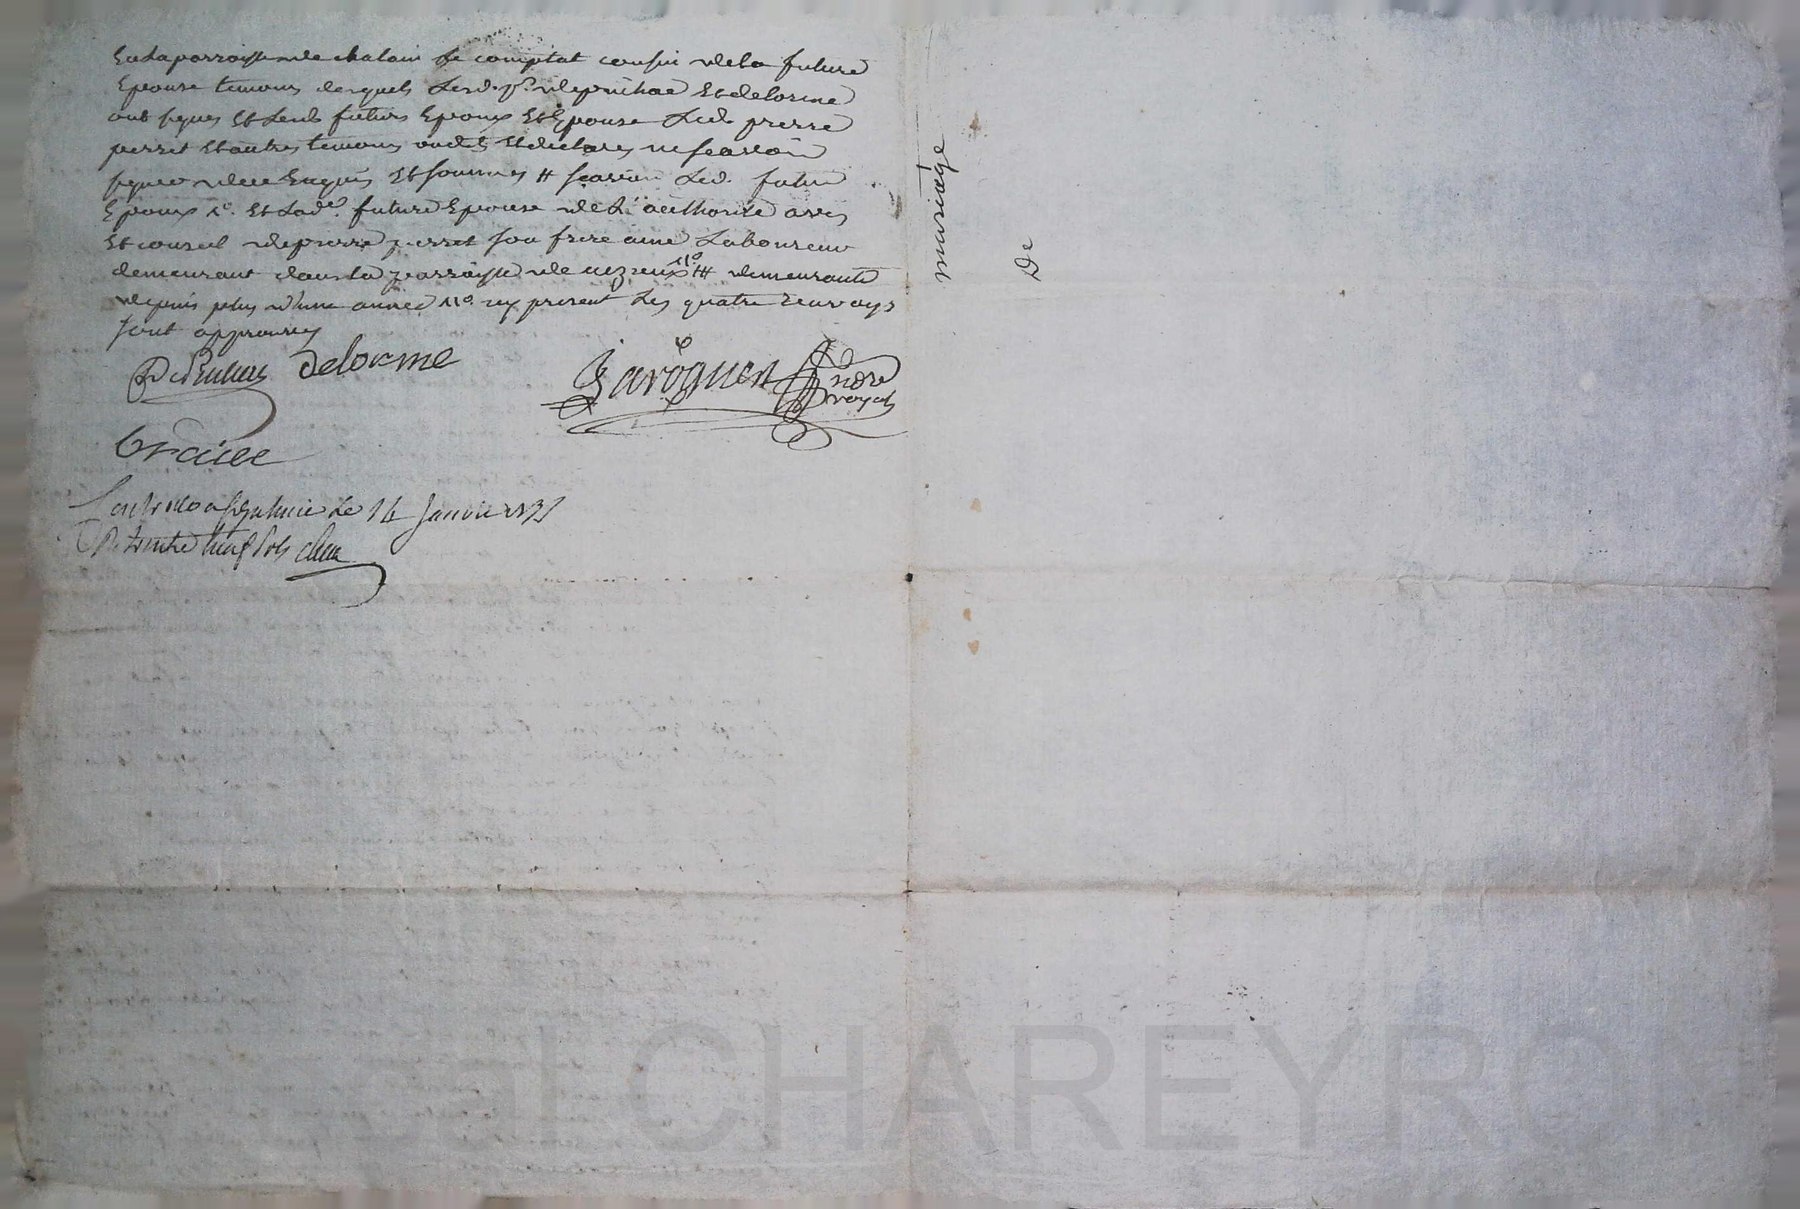 En la parroisse de chalain le comptal cousin de la future
Epouse temoins desquels Led. Sr. depuihac Et delorme
ont signes Et Lesd. futurs Epoux Et Epouse Led. pierre
perret Et autres temoins ont Et declares ne scavoir
signer de ce Enquis Et sommes # scavoir Led. futur
Epoux 1o. Et Lade. future Epouse de L'authorite avis
Et conseil de pierre perret son frere ainé Laboureur
demeurant dans la parroisse de 11o. ## demeurante
depuis plus d'une année 11o. icy present Les quatre renvoys
sont approuvés
Delorme
Baroguen Nore
royal
Controllé a Le 14 Janvier
R. trente neuf sols
mariage
De
CHAREYRON